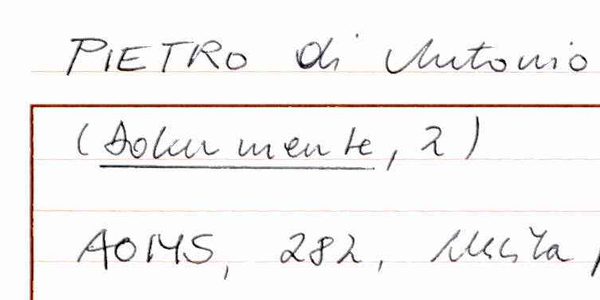 PIETRO di Antonio
(Dokumente, 2)
AOMS, 282, Uscita